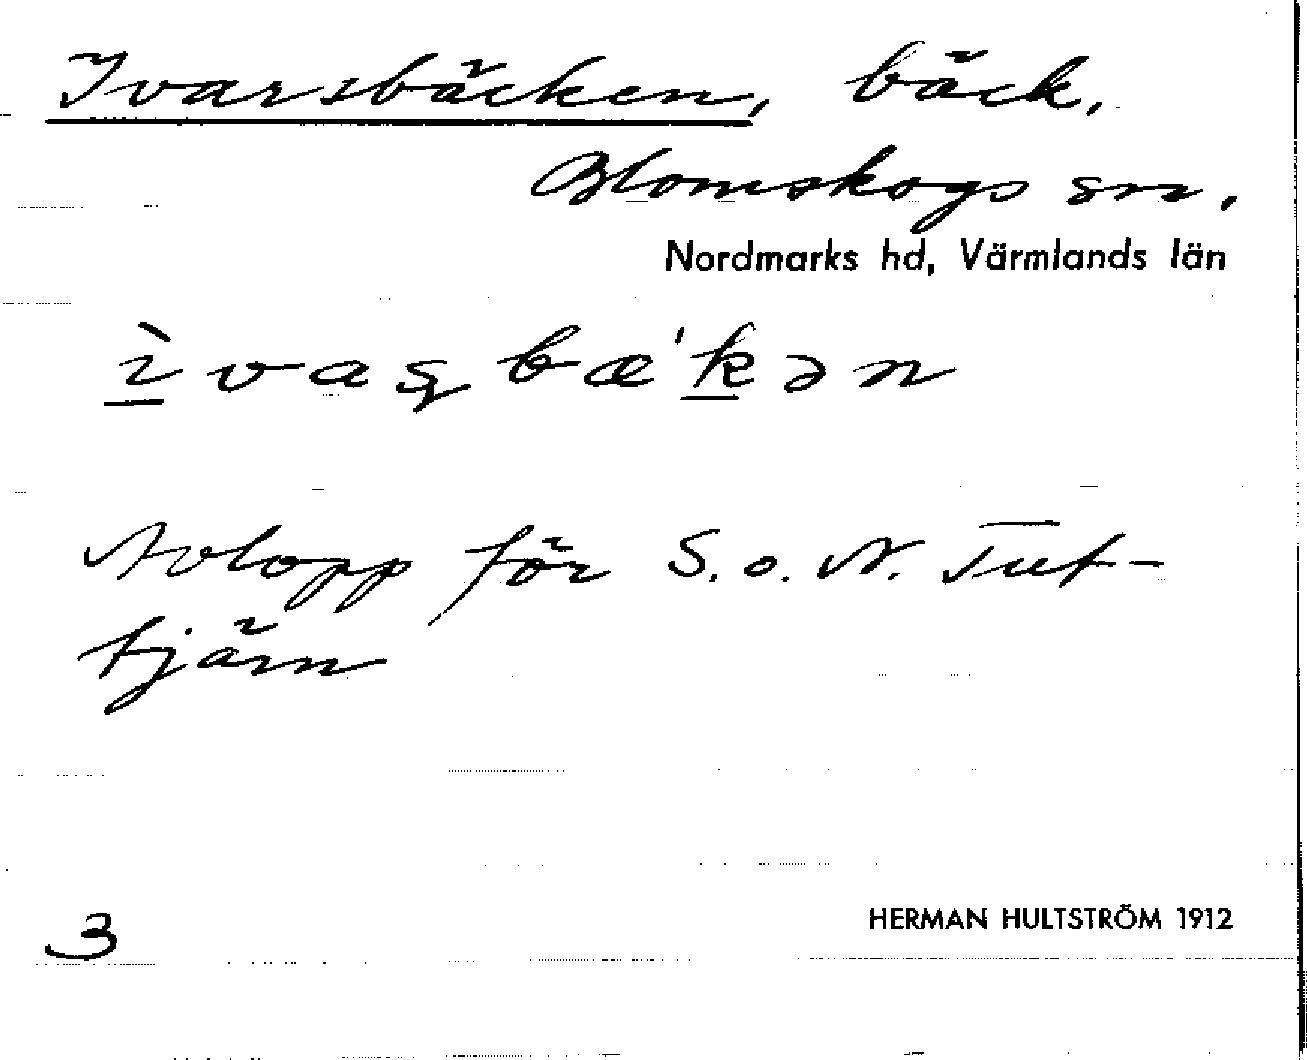 Ivarsbäcken, bäck,
Blomskogs sn,
Nordmarks hd, Värmlands län
ìvaʂbæ'kən
Avlopp för S. o. N. Tut-
tjärn
3
HERMAN HULTSTRÖM 1912